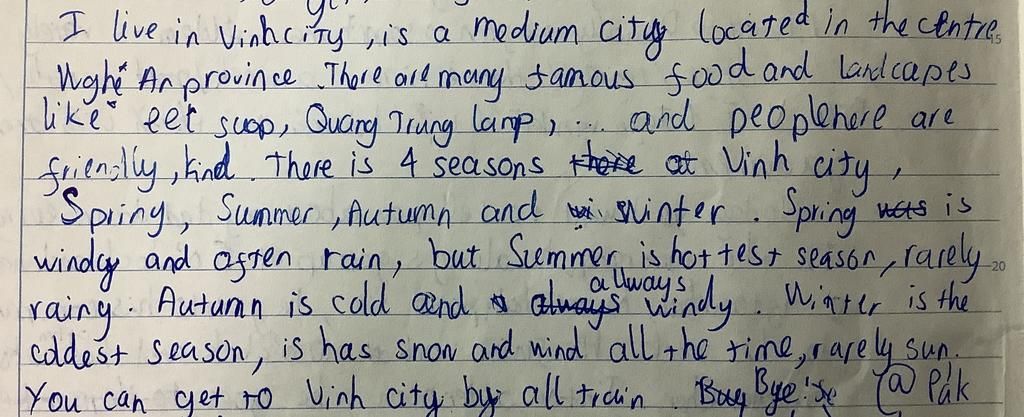 I live in Vinh city, is a medium city located in the centre
Nghệ An province. There are many famous food and landcapes
like eet suop, Quang Trung lamp, ... and people here are
friendly, kind. There is 4 seasons there at Vinh city,
Spring, Summer, Autumn and wi. Winter. Spring was is
windy and often rain, but Summer is hottest season, rarely 20
allways
rainy. Autumn is cold and always windy. Winter is the
coldest season, is has snow and wind all the time, rarely sun.
You can get to Vinh city by all train. Bay Bye! @ Pák